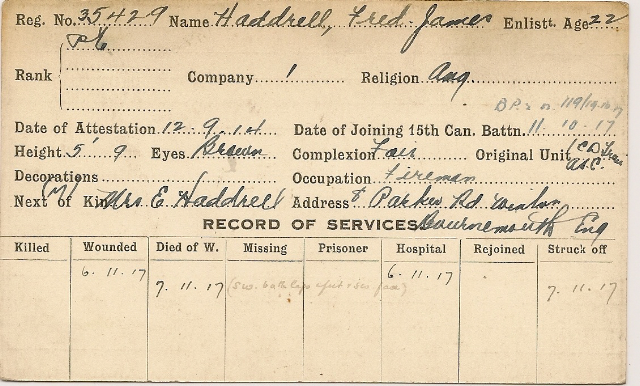 Reg. No. 35429 Name Haddrell, Fred James Enlistt. Age 22
Pte
Rank Company 1 Religion Ang.
11. 10. 17
Date of Attestation 12. 9. 14 Date of Joining 15th Can. Battn.
Height 5' 9 Eyes Brown Complexion Fair Original Unit A.S.C.
Decorations Occupation Fireman
Next of Kin (M) Mrs. E. Haddrell Address Parker Rd. Winton
RECORD OF SERVICES Bournemouth Eng
Killed Wounded Died of W. Missing Prisoner Hospital Rejoined Struck off
6. 11. 17 6. 11. 17
7. 11. 17 7. 11. 17